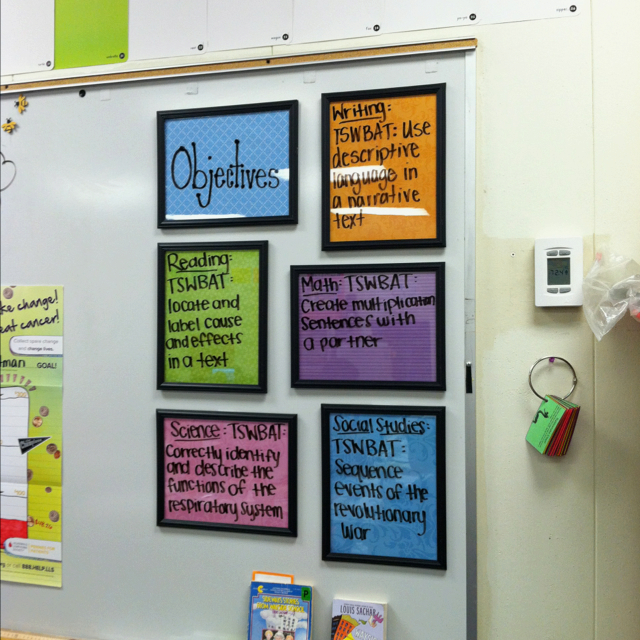 Objectives
Writing:
TSWBAT: Use
descriptive
language in
a narrative
text
Reading:
TSWBAT:
locate and
label cause
and effects
in a text
Math: TSWBAT:
Create multiplication
Sentences with
a partner
Science: TSWBAT:
Correctly identify
and describe the
functions of the
respiratory system
Social Studies:
TSWBAT:
Sequence
events of the
revolutionary
War
change!
cancer!
Collect spare change
and change lives.
GOAL!
LOUIS SACHAR
P